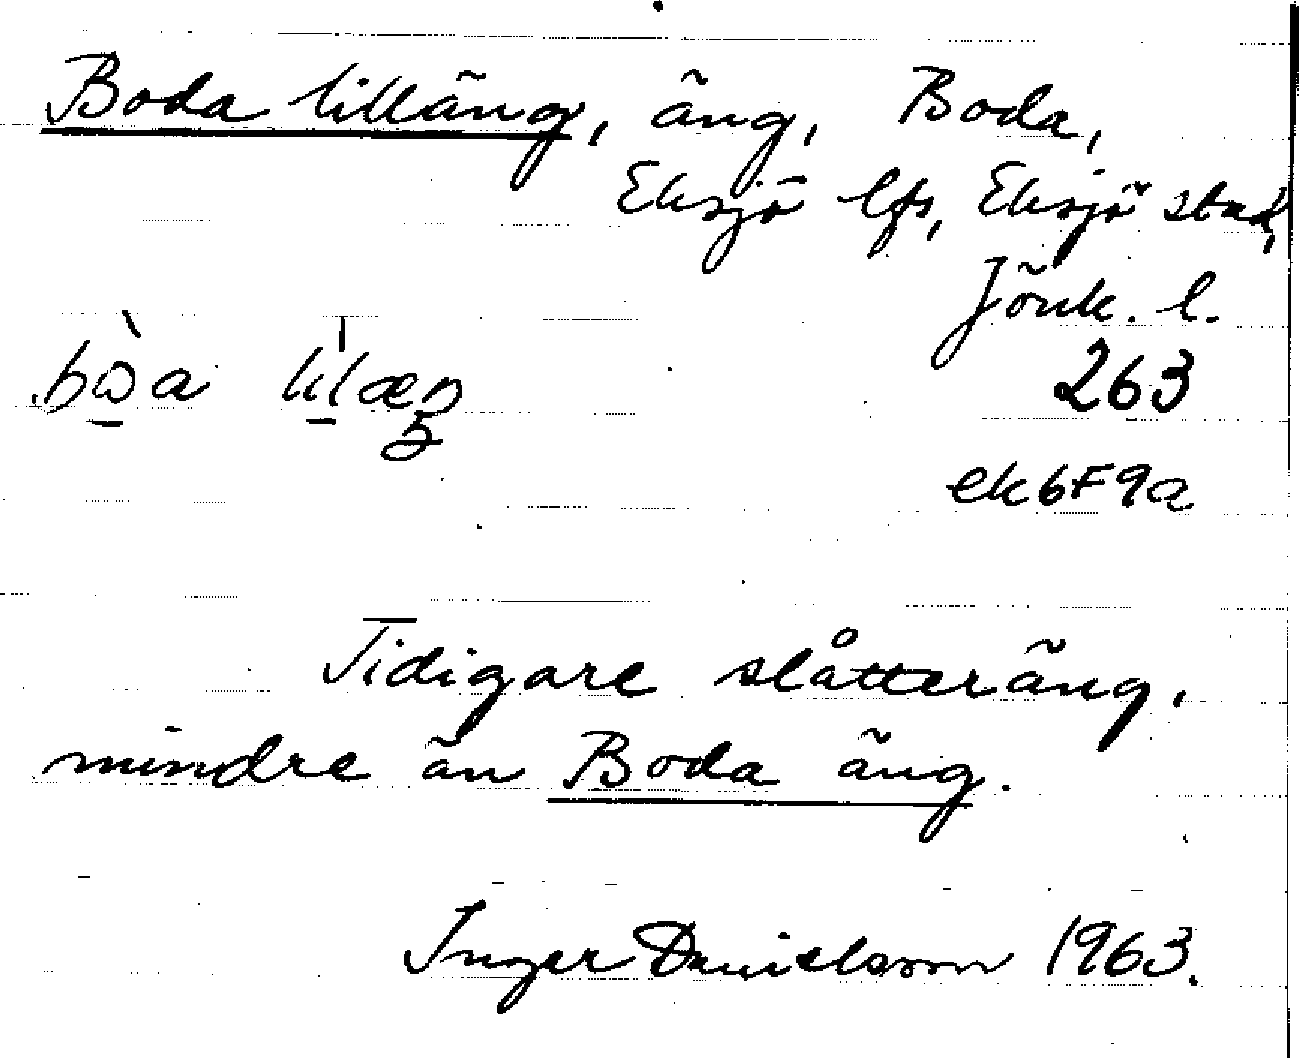 Boda lilläng, äng, Boda,
Eksjö lfs, Eksjö stad,
Jönk. l.
263
ek6F9a
Tidigare slåtteräng,
mindre än Boda äng.
Inger Danielsson 1963.